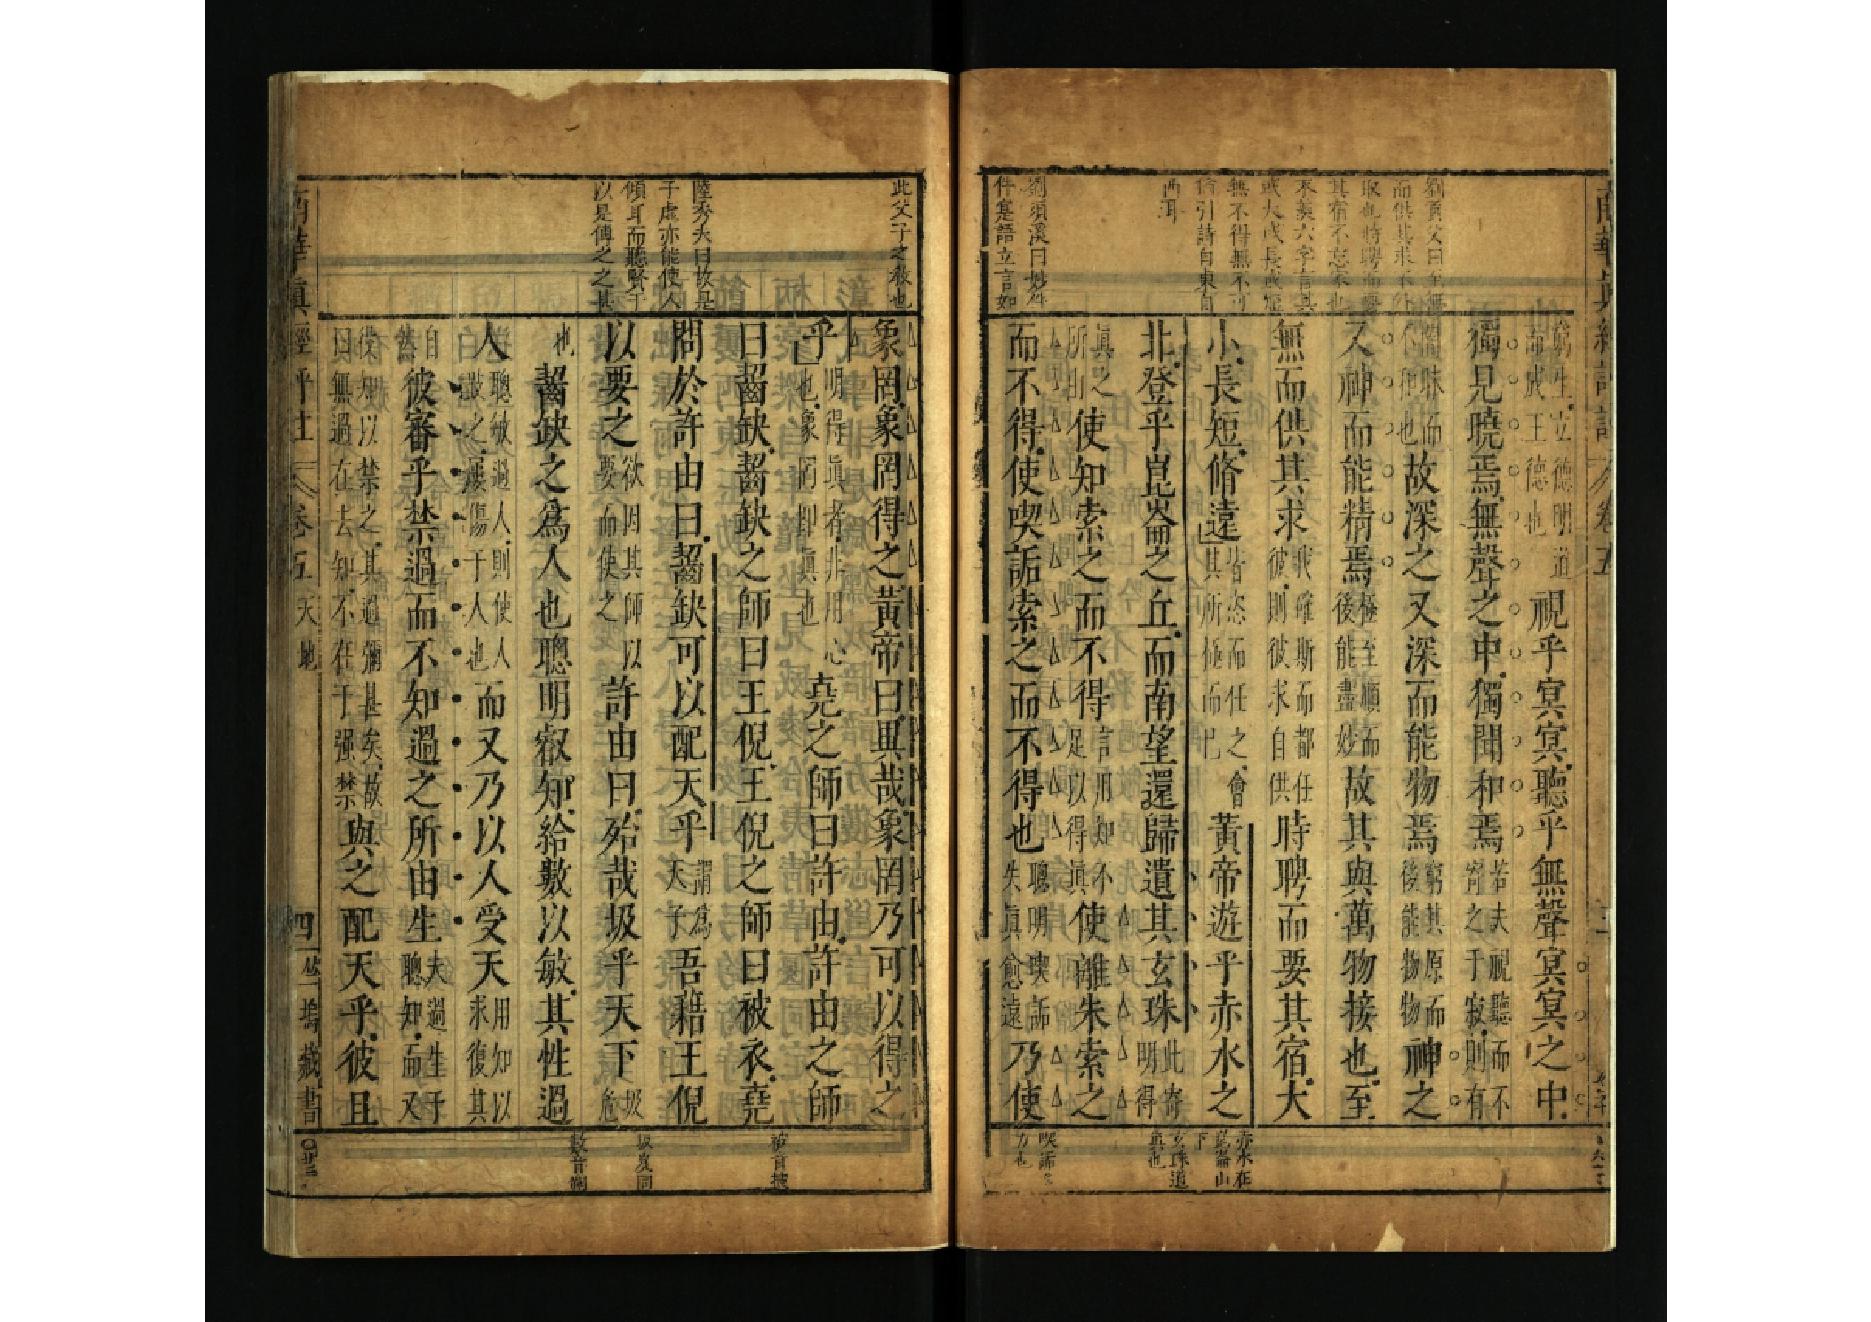 南華真經評註 卷五
劉貢父曰至無
而供其求不外
取也時騁而要
其宿不忘本也
或大或長或短
無不得無不可
猶引詩自東自
西耳
劉須溪曰妙
件是語立言如
窮生立德明道而成王德也視乎冥冥聽乎無聲冥冥之中
獨見曉焉無聲之中獨聞和焉若夫視聽而不寄之于寂則有
闇昧而不和也故深之又深而能物焉窮其原而後能物物神之
又神而能精焉極至順而後能盡妙故其與萬物接也至
無而供其求我確斯而都任彼則彼求自供時騁而要其宿大
小長短脩遠皆恣而任之會其所極而已黃帝遊乎赤水之
北登乎崑崙之丘而南望還歸遺其玄珠此寄明得
真之所由使知索之而不得言用知不足以得真使離朱索之
而不得使喫詬索之而不得也聰明喫詬失真愈遠乃使
赤水在
崑崙山
下
玄珠道
真也
喫詬
力也
此父子之教也
陸秀夫曰故是
子虛亦能使人
傾耳而聽賢于
以是傳之之甚
象罔象罔得之黃帝曰異哉象罔乃可以得之
乎明得真者非用心也象罔即真也堯之師曰許由許由之師
曰齧缺齧缺之師曰王倪王倪之師曰被衣堯
問於許由曰齧缺可以配天乎謂為天子吾藉王倪
以要之欲因其師以要而使之許由曰殆哉圾乎天下圾危
也齧缺之為人也聰明叡知給數以敏其性過
人聰敏過人則使人跂之屢傷于人也而又乃以人受天用知以求復其
自然彼審乎禁過而不知過之所由生夫過生于聰知而又
役知以禁之其過彌甚矣故曰無過在去知不在于强禁與之配天乎彼且
被音披
圾岌同
數音朔
南華真經評註 卷五 天地 四 藏書